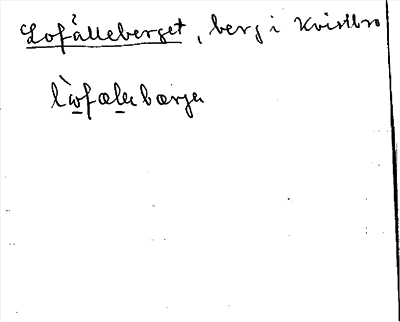 Lofälleberget, berg i Kvistbro
lòfælebærje